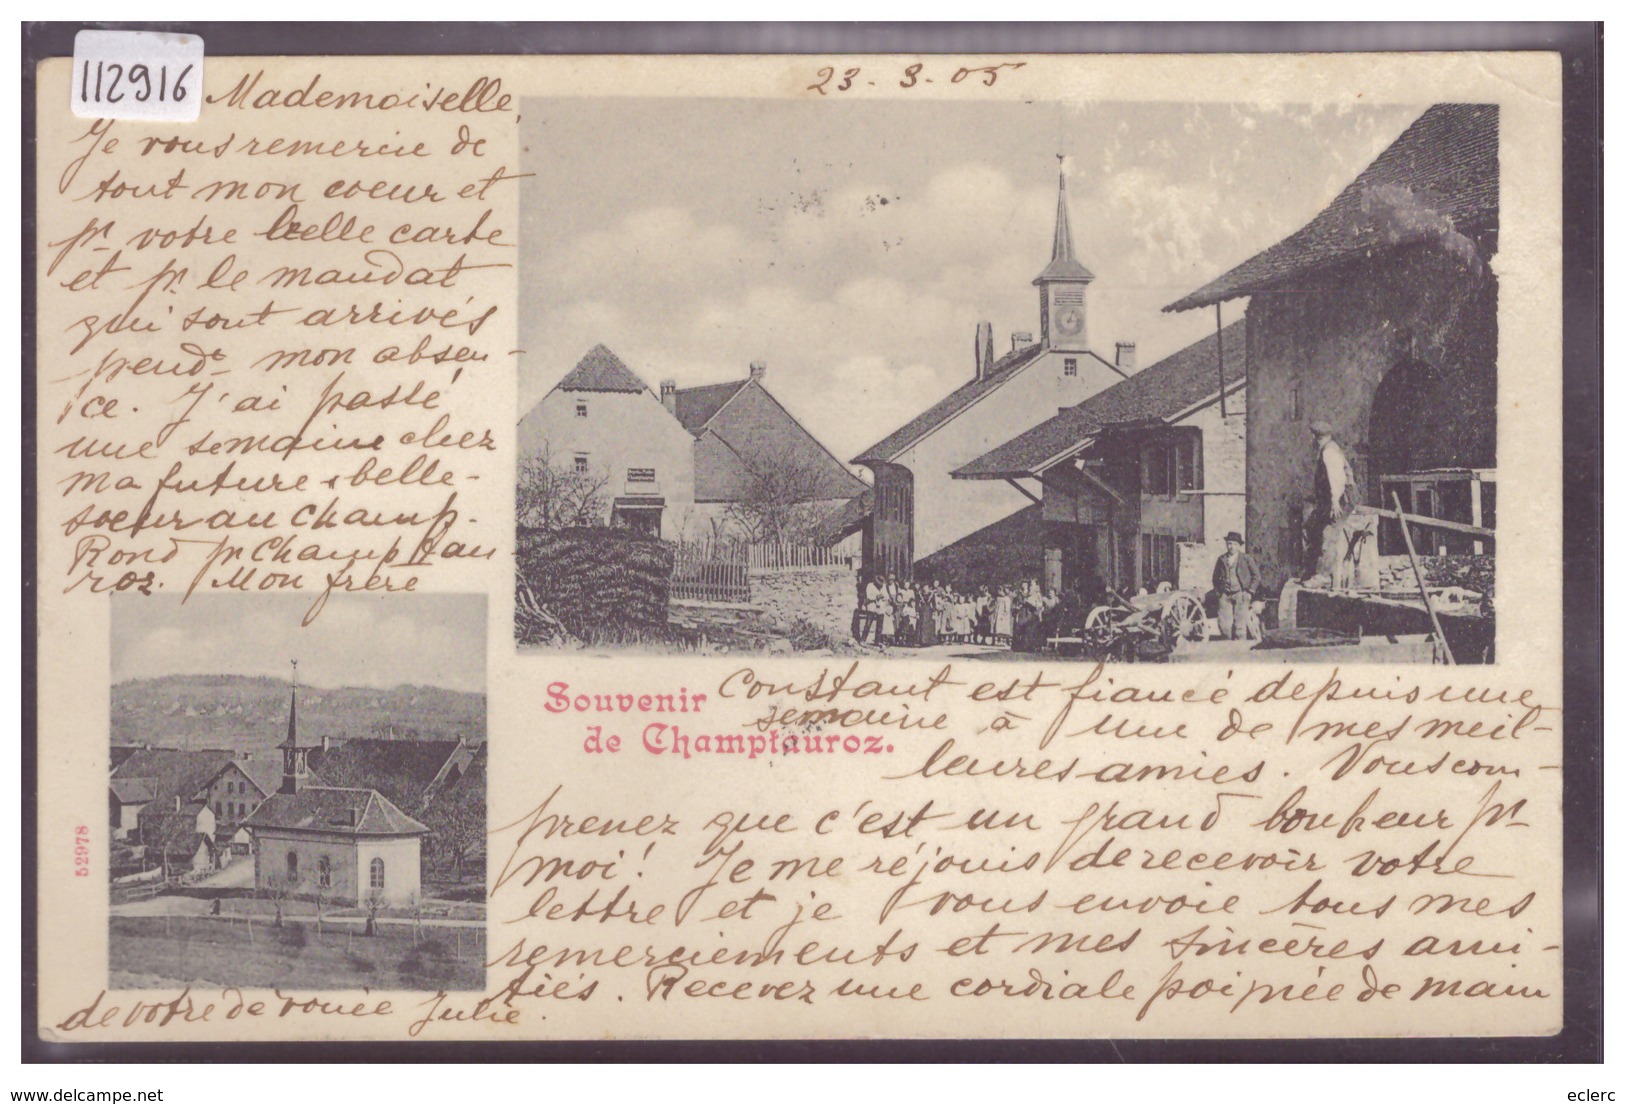 112916
23 - 3 - 05
Mademoiselle,
Je vous remercie de
tout mon coeur et
pr votre belle carte
et pr le mandat
qui sont arrivés
pendt mon absen-
ce. J'ai passé
une semaine chez
ma future belle-
soeur au Champ-
Rond pr Champtau-
roz. Mon frère
Souvenir
de Champtauroz.
Constant est fiancé depuis une
semaine à une de mes meil-
leures amies. Vous com-
prenez que c'est un grand bonheur pr
moi! Je me réjouis de recevoir votre
lettre et je vous envoie tous mes
remerciements et mes sincères ami-
tiés. Recevez une cordiale poignée de main
de votre dévouée Julie.
52978
www.delcampe.net
eclerc